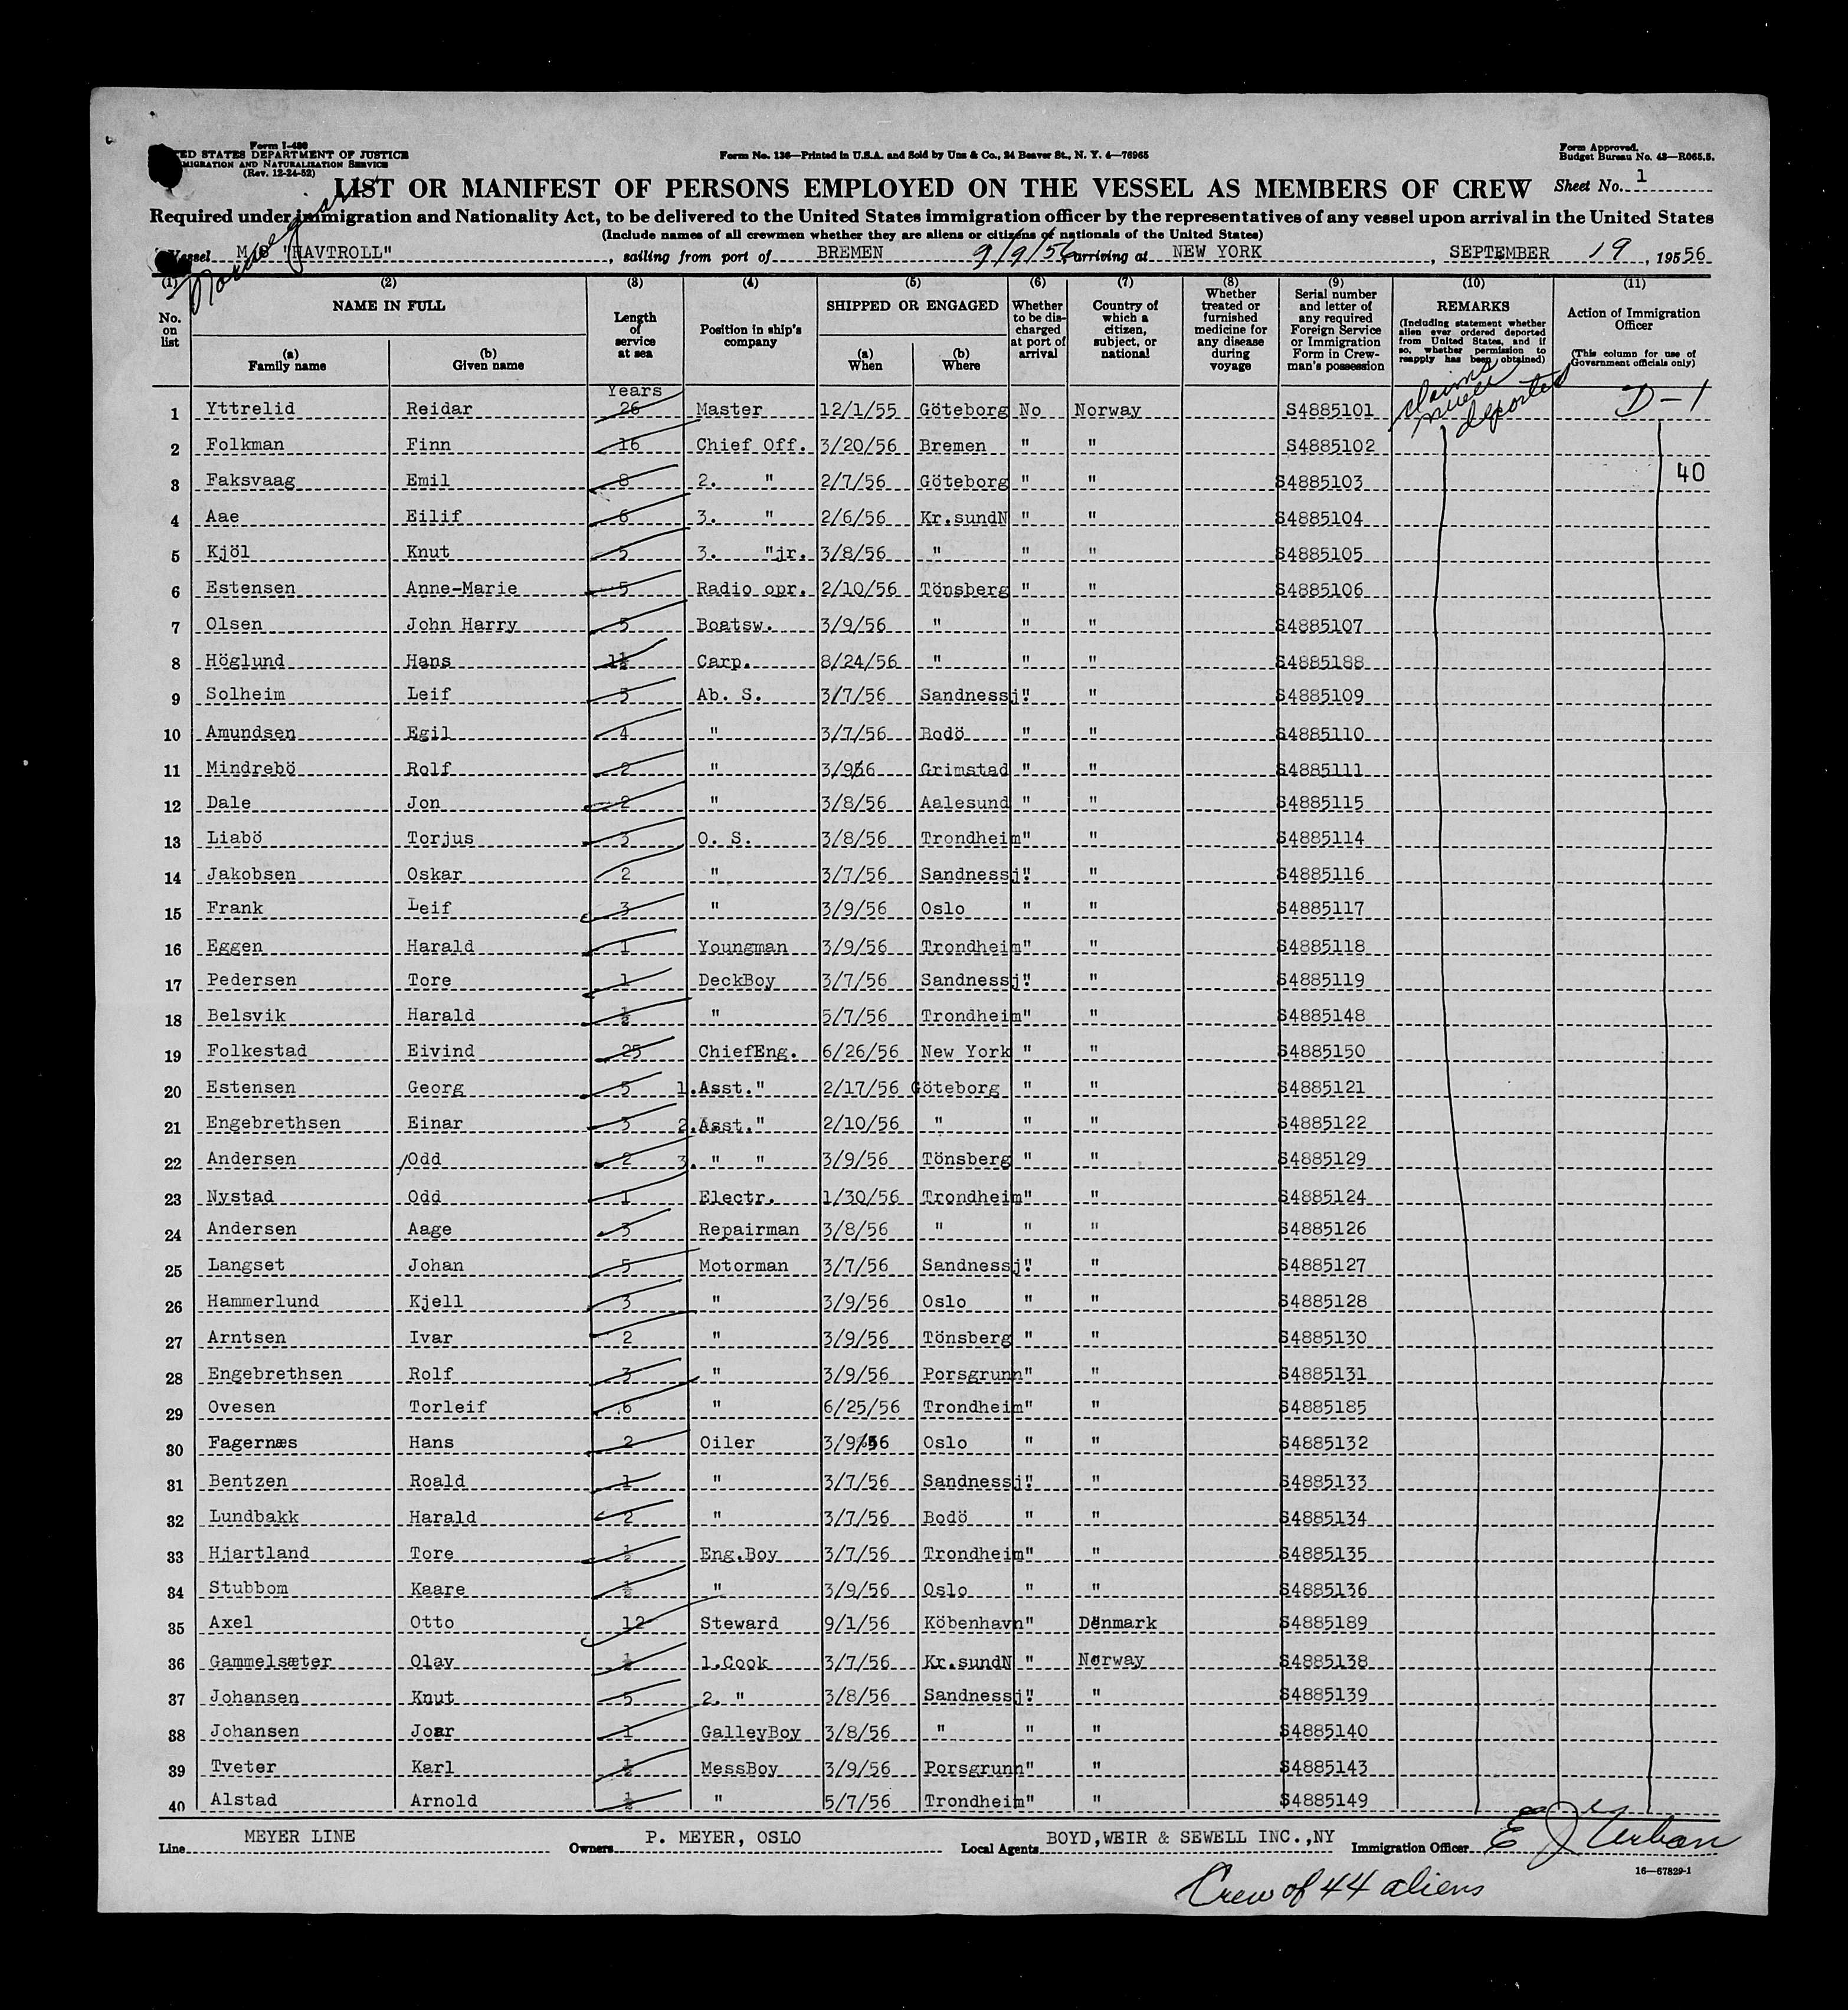 Form I-480
UNITED STATES DEPARTMENT OF JUSTICE
IMMIGRATION AND NATURALIZATION SERVICE
(Rev. 12-24-52)
Form No. 136—Printed in U.S.A. and Sold by Unz & Co., 24 Beaver St., N. Y. 4—76965
Form Approved.
Budget Bureau No. 43—R065.5.
LIST OR MANIFEST OF PERSONS EMPLOYED ON THE VESSEL AS MEMBERS OF CREW Sheet No. 1
Required under immigration and Nationality Act, to be delivered to the United States immigration officer by the representatives of any vessel upon arrival in the United States
(Include names of all crewmen whether they are aliens or citizens or nationals of the United States)
Norwegian
Vessel M/S "HAVTROLL", sailing from port of BREMEN 9/9/56, arriving at NEW YORK, SEPTEMBER 19, 1956
(1) (2) (3) (4) (5) (6) (7) (8) (9) (10) (11)
No. on list NAME IN FULL Length of service at sea Position in ship's company SHIPPED OR ENGAGED Whether to be discharged at port of arrival Country of which a citizen, subject, or national Whether treated or furnished medicine for any disease during voyage Serial number and letter of any required Foreign Service or Immigration Form in Crewman's possession REMARKS (Including statement whether alien ever ordered deported from United States, and if so, whether permission to reapply has been obtained) Action of Immigration Officer (This column for use of Government officials only)
(a) Family name (b) Given name (a) When (b) Where
Years
1 Yttrelid Reidar 26 Master 12/1/55 Göteborg No Norway S4885101 claims never deported D-1
2 Folkman Finn 16 Chief Off. 3/20/56 Bremen " " S4885102
3 Faksvaag Emil 8 2. " 2/7/56 Göteborg " " S4885103 40
4 Aae Eilif 6 3. " 2/6/56 Kr.sundN " " S4885104
5 Kjöl Knut 5 3. "jr. 3/8/56 " " " S4885105
6 Estensen Anne-Marie 5 Radio opr. 2/10/56 Tönsberg " " S4885106
7 Olsen John Harry 5 Boatsw. 3/9/56 " " " S4885107
8 Höglund Hans 1½ Carp. 8/24/56 " " " S4885188
9 Solheim Leif 5 Ab. S. 3/7/56 Sandnessj. " " S4885109
10 Amundsen Egil 4 " 3/7/56 Bodö " " S4885110
11 Mindrebö Rolf 2 " 3/9/56 Grimstad " " S4885111
12 Dale Jon 2 " 3/8/56 Aalesund " " S4885115
13 Liabö Torjus 3 O. S. 3/8/56 Trondheim " " S4885114
14 Jakobsen Oskar 2 " 3/7/56 Sandnessj. " " S4885116
15 Frank Leif 3 " 3/9/56 Oslo " " S4885117
16 Eggen Harald 1 Youngman 3/9/56 Trondheim " " S4885118
17 Pedersen Tore 1 DeckBoy 3/7/56 Sandnessj. " " S4885119
18 Belsvik Harald ½ " 5/7/56 Trondheim " " S4885148
19 Folkestad Eivind 25 ChiefEng. 6/26/56 New York " " S4885150
20 Estensen Georg 5 1.Asst." 2/17/56 Göteborg " " S4885121
21 Engebrethsen Einar 3 2.Asst." 2/10/56 " " " S4885122
22 Andersen Odd 2 3. " " 3/9/56 Tönsberg " " S4885129
23 Nystad Odd 1 Electr. 1/30/56 Trondheim " " S4885124
24 Andersen Aage 3 Repairman 3/8/56 " " " S4885126
25 Langset Johan 5 Motorman 3/7/56 Sandnessj. " " S4885127
26 Hammerlund Kjell 3 " 3/9/56 Oslo " " S4885128
27 Arntsen Ivar 2 " 3/9/56 Tönsberg " " S4885130
28 Engebrethsen Rolf 3 " 3/9/56 Porsgrunn " " S4885131
29 Ovesen Torleif 6 " 6/25/56 Trondheim " " S4885185
30 Fagernæs Hans 2 Oiler 3/9/56 Oslo " " S4885132
31 Bentzen Roald 1 " 3/7/56 Sandnessj. " " S4885133
32 Lundbakk Harald 2 " 3/7/56 Bodö " " S4885134
33 Hjartland Tore ½ Eng.Boy 3/7/56 Trondheim " " S4885135
34 Stubbom Kaare ½ " 3/9/56 Oslo " " S4885136
35 Axel Otto 12 Steward 9/1/56 Köbenhavn " Denmark S4885189
36 Gammelsæter Olav ½ 1.Cook 3/7/56 Kr.sundN " Norway S4885138
37 Johansen Knut 5 2. " 3/8/56 Sandnessj. " " S4885139
38 Johansen Joar 1 GalleyBoy 3/8/56 " " " S4885140
39 Tveter Karl ½ MessBoy 3/9/56 Porsgrunn " " S4885143
40 Alstad Arnold ½ " 5/7/56 Trondheim " " S4885149
Line MEYER LINE Owners P. MEYER, OSLO Local Agents BOYD,WEIR & SEWELL INC.,NY Immigration Officer E J Urban
16—67829-1
Crew of 44 aliens